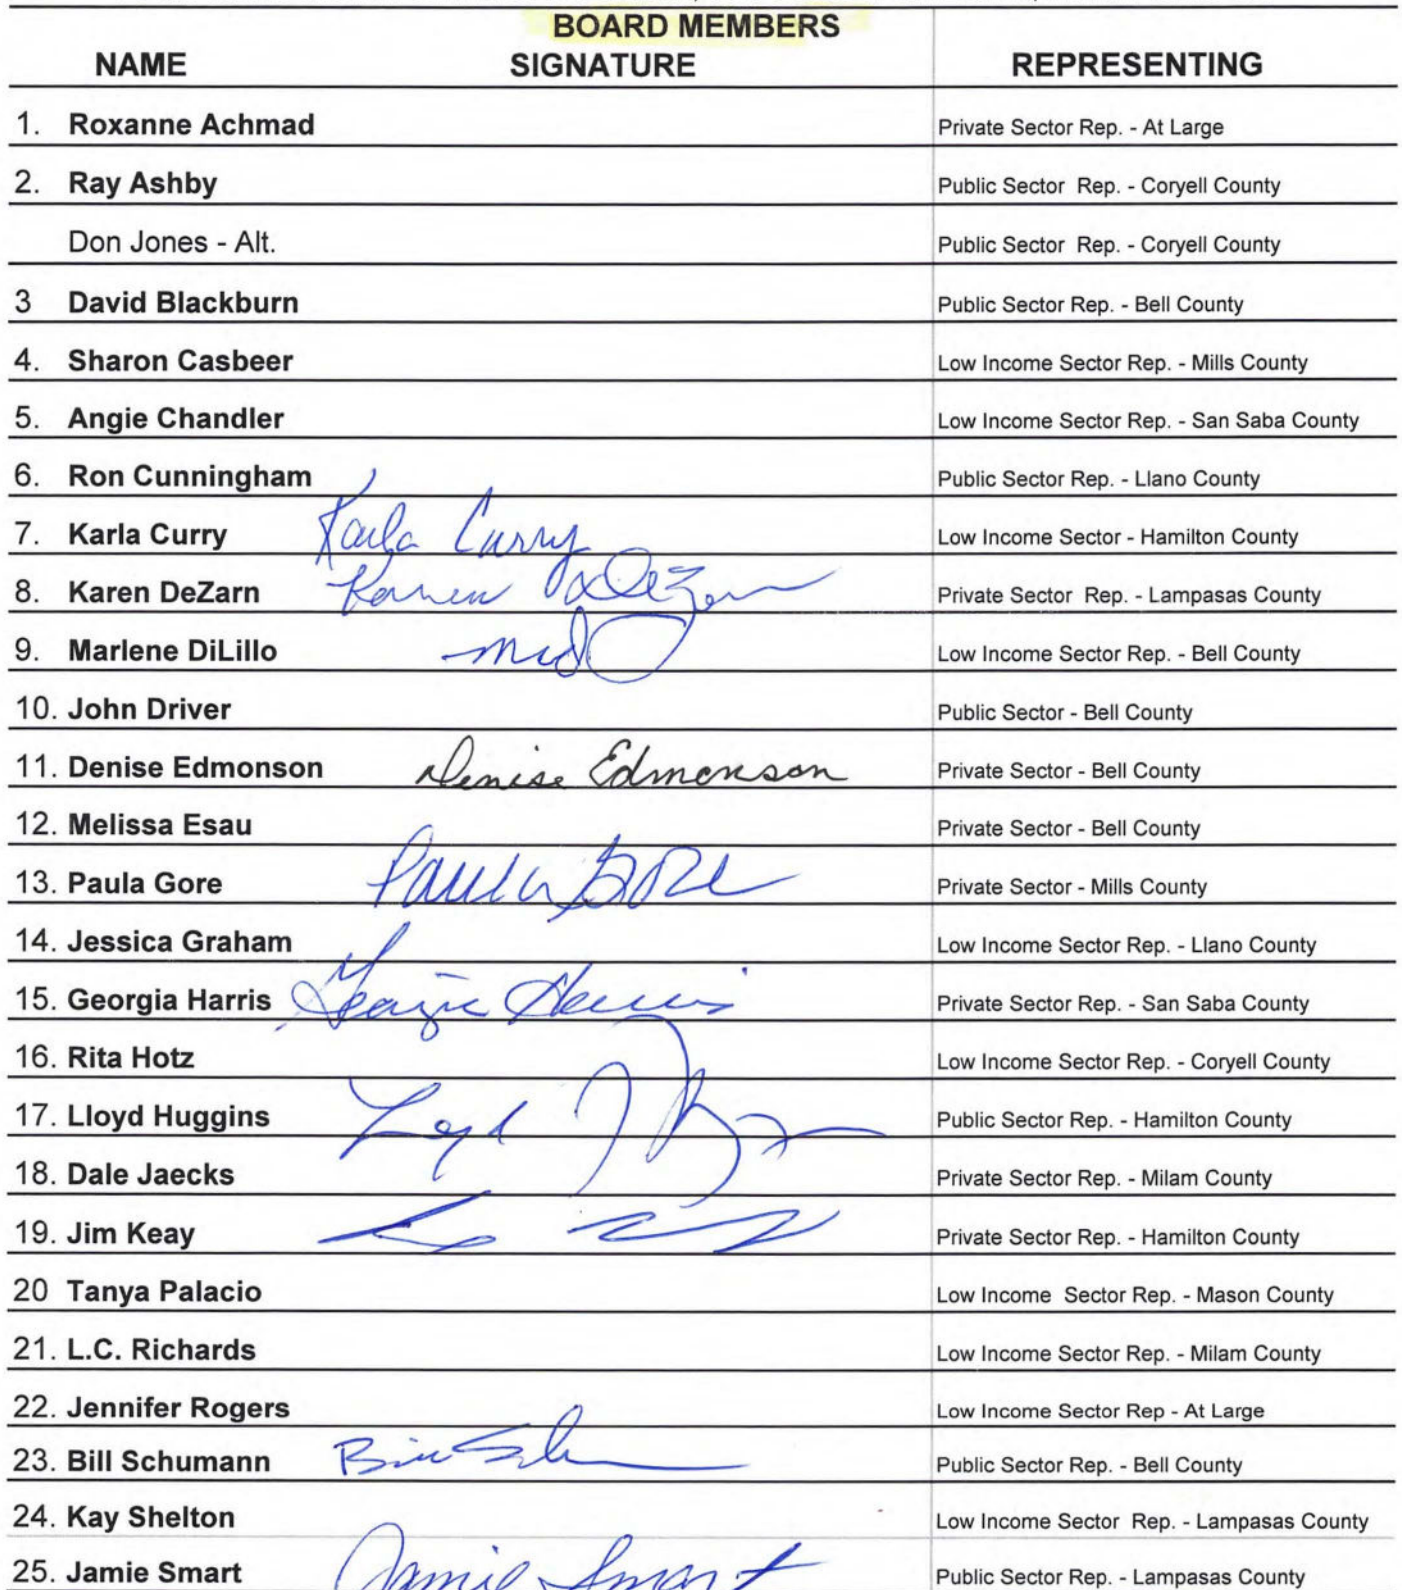 BOARD MEMBERS
NAME SIGNATURE REPRESENTING
1. Roxanne Achmad Private Sector Rep. - At Large
2. Ray Ashby Public Sector Rep. - Coryell County
Don Jones - Alt. Public Sector Rep. - Coryell County
3 David Blackburn Public Sector Rep. - Bell County
4. Sharon Casbeer Low Income Sector Rep. - Mills County
5. Angie Chandler Low Income Sector Rep. - San Saba County
6. Ron Cunningham Public Sector Rep. - Llano County
7. Karla Curry Karla Curry Low Income Sector - Hamilton County
8. Karen DeZarn Karen DeZarn Private Sector Rep. - Lampasas County
9. Marlene DiLillo Low Income Sector Rep. - Bell County
10. John Driver Public Sector - Bell County
11. Denise Edmonson Denise Edmonson Private Sector - Bell County
12. Melissa Esau Private Sector - Bell County
13. Paula Gore Paula Gore Private Sector - Mills County
14. Jessica Graham Low Income Sector Rep. - Llano County
15. Georgia Harris Georgia Harris Private Sector Rep. - San Saba County
16. Rita Hotz Low Income Sector Rep. - Coryell County
17. Lloyd Huggins Public Sector Rep. - Hamilton County
18. Dale Jaecks Private Sector Rep. - Milam County
19. Jim Keay Private Sector Rep. - Hamilton County
20 Tanya Palacio Low Income Sector Rep. - Mason County
21. L.C. Richards Low Income Sector Rep. - Milam County
22. Jennifer Rogers Low Income Sector Rep - At Large
23. Bill Schumann Public Sector Rep. - Bell County
24. Kay Shelton Low Income Sector Rep. - Lampasas County
25. Jamie Smart Jamie Smart Public Sector Rep. - Lampasas County